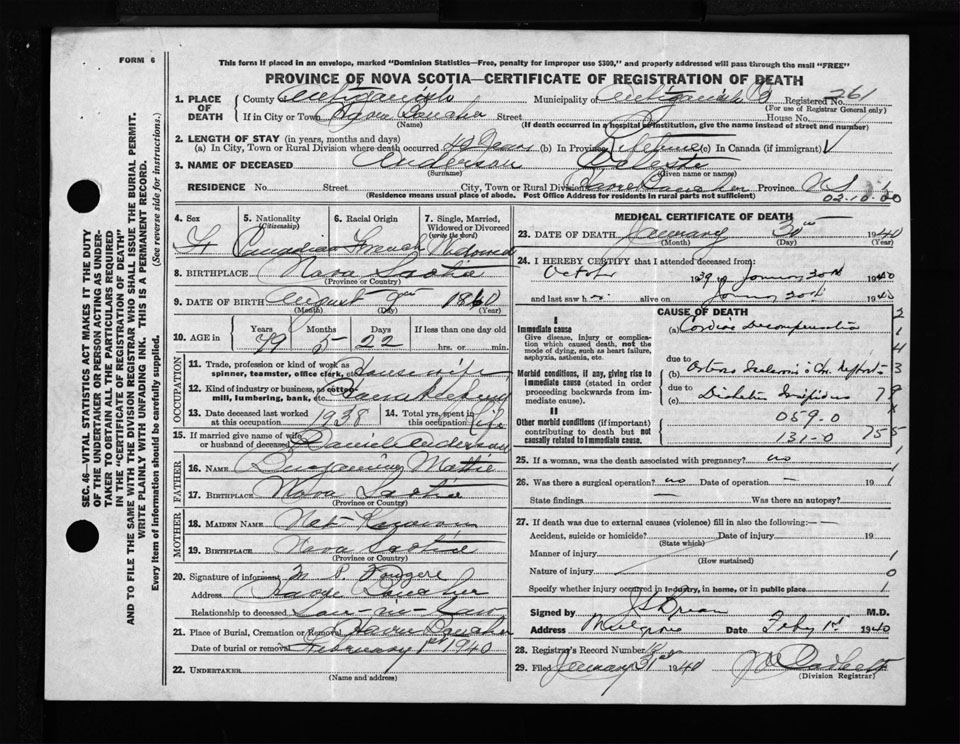 FORM 6
This form if placed in an envelope, marked "Dominion Statistics—Free, penalty for improper use $300," and properly addressed will pass through the mail "FREE"
PROVINCE OF NOVA SCOTIA—CERTIFICATE OF REGISTRATION OF DEATH
1. PLACE OF DEATH County Antigonish Municipality of Antigonish Registered No. 261
(For use of Registrar General only)
If in City or Town Havre Boucher Street House No.
(Name) (If death occurred in a hospital or institution, give the name instead of street and number)
2. LENGTH OF STAY (in years, months and days)
(a) In City, Town or Rural Division where death occurred Years (b) In Province Lifetime (c) In Canada (if immigrant)
3. NAME OF DECEASED Anderson Celeste
(Surname) (Given name or names)
RESIDENCE No. Street City, Town or Rural Division Havre Boucher Province N S
(Residence means usual place of abode. Post Office Address for residents in rural parts not sufficient)
02.10.00
4. Sex F
5. Nationality (Citizenship) Canadian
6. Racial Origin French
7. Single, Married, Widowed or Divorced (write the word) Widowed
8. BIRTHPLACE Nova Scotia
(Province or Country)
9. DATE OF BIRTH August 9th 1860
(Month) (Day)
10. AGE in Years 79 Months 5 Days 22 If less than one day old hrs. or min.
OCCUPATION
11. Trade, profession or kind of work as spinner, teamster, office clerk, etc. Housewife
12. Kind of industry or business, as cotton mill, lumbering, bank, etc.
13. Date deceased last worked at this occupation 1938
14. Total yrs. spent in this occupation Life
15. If married give name of wife or husband of deceased Daniel Anderson
FATHER
16. NAME Benjamin Mattie
17. BIRTHPLACE Nova Scotia
(Province or Country)
MOTHER
18. MAIDEN NAME Not Known
19. BIRTHPLACE Nova Scotia
(Province or Country)
20. Signature of informant M. P. Fougere
Address Havre Boucher
Relationship to deceased Son-in-Law
21. Place of Burial, Cremation or Removal Havre Boucher
Date of burial or removal February 1st 1940
22. UNDERTAKER
(Name and address)
MEDICAL CERTIFICATE OF DEATH
23. DATE OF DEATH January 30th 1940
(Month) (Day) (Year)
24. I HEREBY CERTIFY that I attended deceased from:
October 1939 to January 30th 1940
and last saw h alive on January 30th 1940
CAUSE OF DEATH
I
Immediate cause
Give disease, injury or complication which caused death, not the mode of dying, such as heart failure, asphyxia, asthenia, etc.
(a) Cardiac Decompensation
Morbid conditions, if any, giving rise to immediate cause (stated in order proceeding backwards from immediate cause).
due to
(b) Arterio Sclerosis
due to
(c) Diabetes Insipidus
II
Other morbid conditions (if important) contributing to death but not causally related to immediate cause.
059-0
131-0
25. If a woman, was the death associated with pregnancy? no
26. Was there a surgical operation? no Date of operation — 19
State findings — Was there an autopsy?
27. If death was due to external causes (violence) fill in also the following:—
Accident, suicide or homicide? Date of injury 19
(State which)
Manner of injury
(How sustained)
Nature of injury
Specify whether injury occurred in industry, in home, or in public place
Signed by M.D.
Address Mulgrave Date Feby 1st 1940
28. Registrar's Record Number
29. Filed January 31st 1940
(Division Registrar)
SEC. 46—VITAL STATISTICS ACT MAKES IT THE DUTY
OF THE UNDERTAKER OR PERSON ACTING AS UNDERTAKER TO OBTAIN ALL THE PARTICULARS REQUIRED
IN THE "CERTIFICATE OF REGISTRATION OF DEATH"
AND TO FILE THE SAME WITH THE DIVISION REGISTRAR WHO SHALL ISSUE THE BURIAL PERMIT.
WRITE PLAINLY WITH UNFADING INK. THIS IS A PERMANENT RECORD.
Every item of information should be carefully supplied. (See reverse side for instructions.)